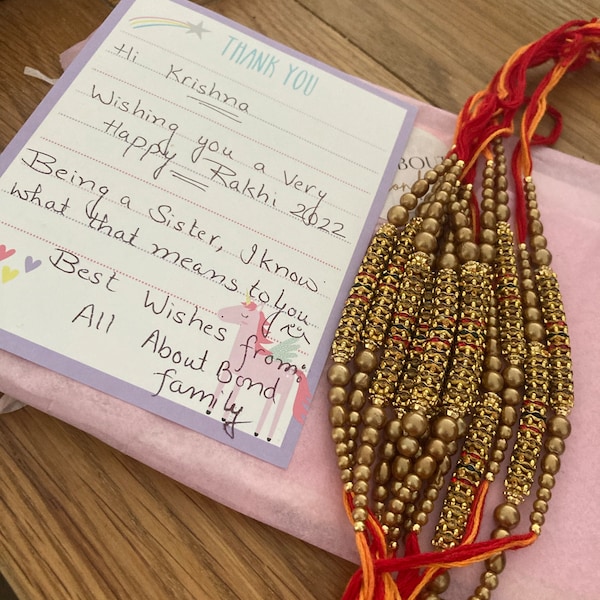 THANK YOU
Hi Krishna
Wishing you a very
Happy Rakhi 2022
Being a Sister, I know
what that means to you
Best Wishes from:
All About Bond
family
BOUT